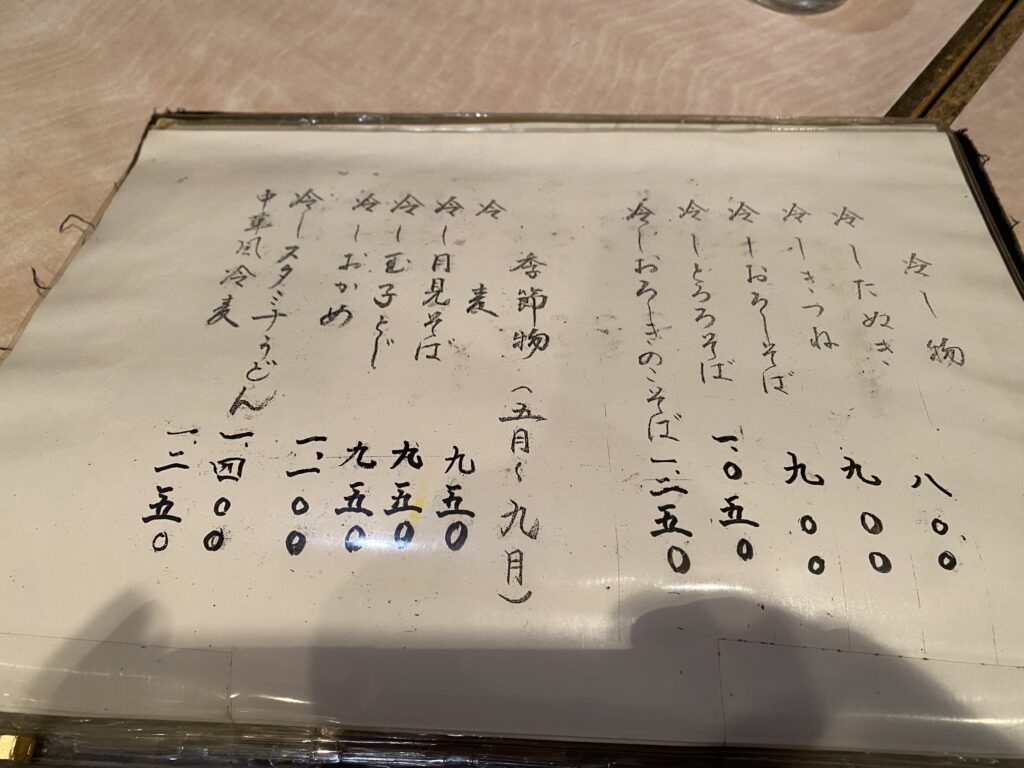 冷し物
冷したぬき 八〇〇
冷しきつね 九〇〇
冷しおろしそば 九〇〇
冷しとろろそば 一、〇五〇
冷しおろしきのこそば 一、二五〇
季節物（五月〜九月）
冷麦 九五〇
冷し月見そば 九五〇
冷し玉子とじ 九五〇
冷しおかめ 一、一〇〇
冷しスタミナうどん 一、四〇〇
中華風冷麦 一、二五〇